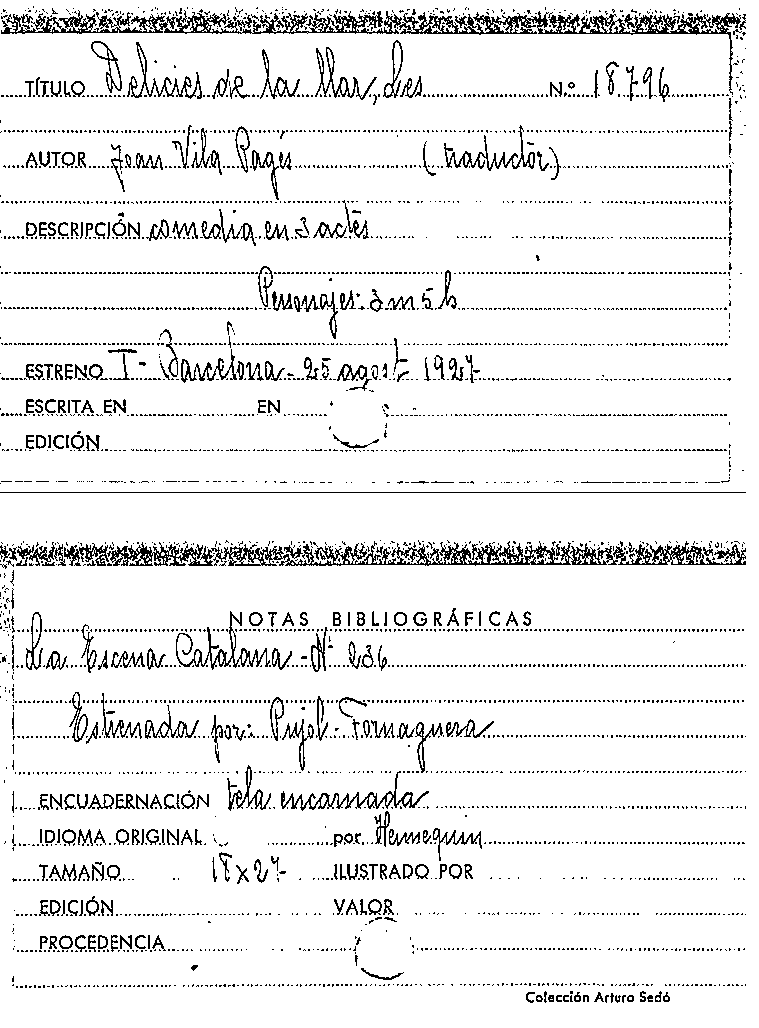 TÍTULO Delicies de la llar, Les N.º 18796
AUTOR Joan Vila Pagés (traductor)
DESCRIPCIÓN comedia en 3 actes
Personajes: 3 m 5 h
ESTRENO T- Barcelona - 25 agost 1927
ESCRITA EN EN
EDICIÓN
NOTAS BIBLIOGRÁFICAS
La Escena Catalana - Nº 236
Estrenada por: Pujol - Fornaguera
ENCUADERNACIÓN tela encarnada
IDIOMA ORIGINAL por Hennequin
TAMAÑO 18x27 ILUSTRADO POR
EDICIÓN VALOR
PROCEDENCIA
Colección Arturo Sedó